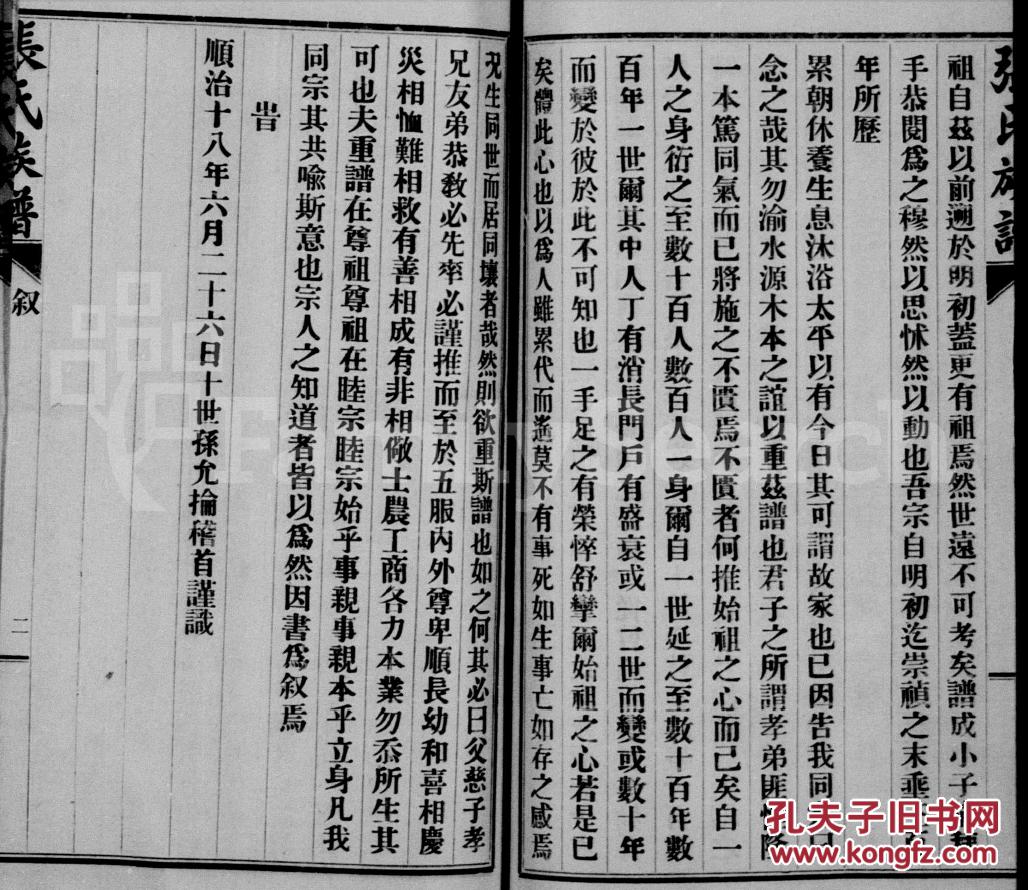 張氏族譜
祖自茲以前遡於明初蓋更有祖焉然世遠不可考矣譜成小子
手恭閱爲之穆然以思怵然以動也吾宗自明初迄崇禎之末垂
年所歷
累朝休養生息沐浴太平以有今日其可謂故家也已因告我同
念之哉其勿渝水源木本之誼以重茲譜也君子之所謂孝弟匪
一本篤同氣而已將施之不匱焉不匱者何推始祖之心而已矣自一
人之身衍之至數十百人數百人一身爾自一世延之至數十百年數
百年一世爾其中人丁有消長門戶有盛衰或一二世而變或數十年
而變於彼於此不可知也一手足之有榮悴舒攣爾始祖之心若是已
矣體此心也以爲人雖累代而遙莫不有事死如生事亡如存之感焉
况生同世而居同壤者哉然則欲重斯譜也如之何其必曰父慈子孝
兄友弟恭教必先率必謹推而至於五服內外尊卑順長幼和喜相慶
災相恤難相救有善相成有非相儆士農工商各力本業勿忝所生其
可也夫重譜在尊祖尊祖在睦宗睦宗始乎事親事親本乎立身凡我
同宗其共喻斯意也宗人之知道者皆以爲然因書爲叙焉
旹
順治十八年六月二十六日十世孫允掄稽首謹識
張氏族譜
叙
二
孔夫子旧书网
www.kongfz.com